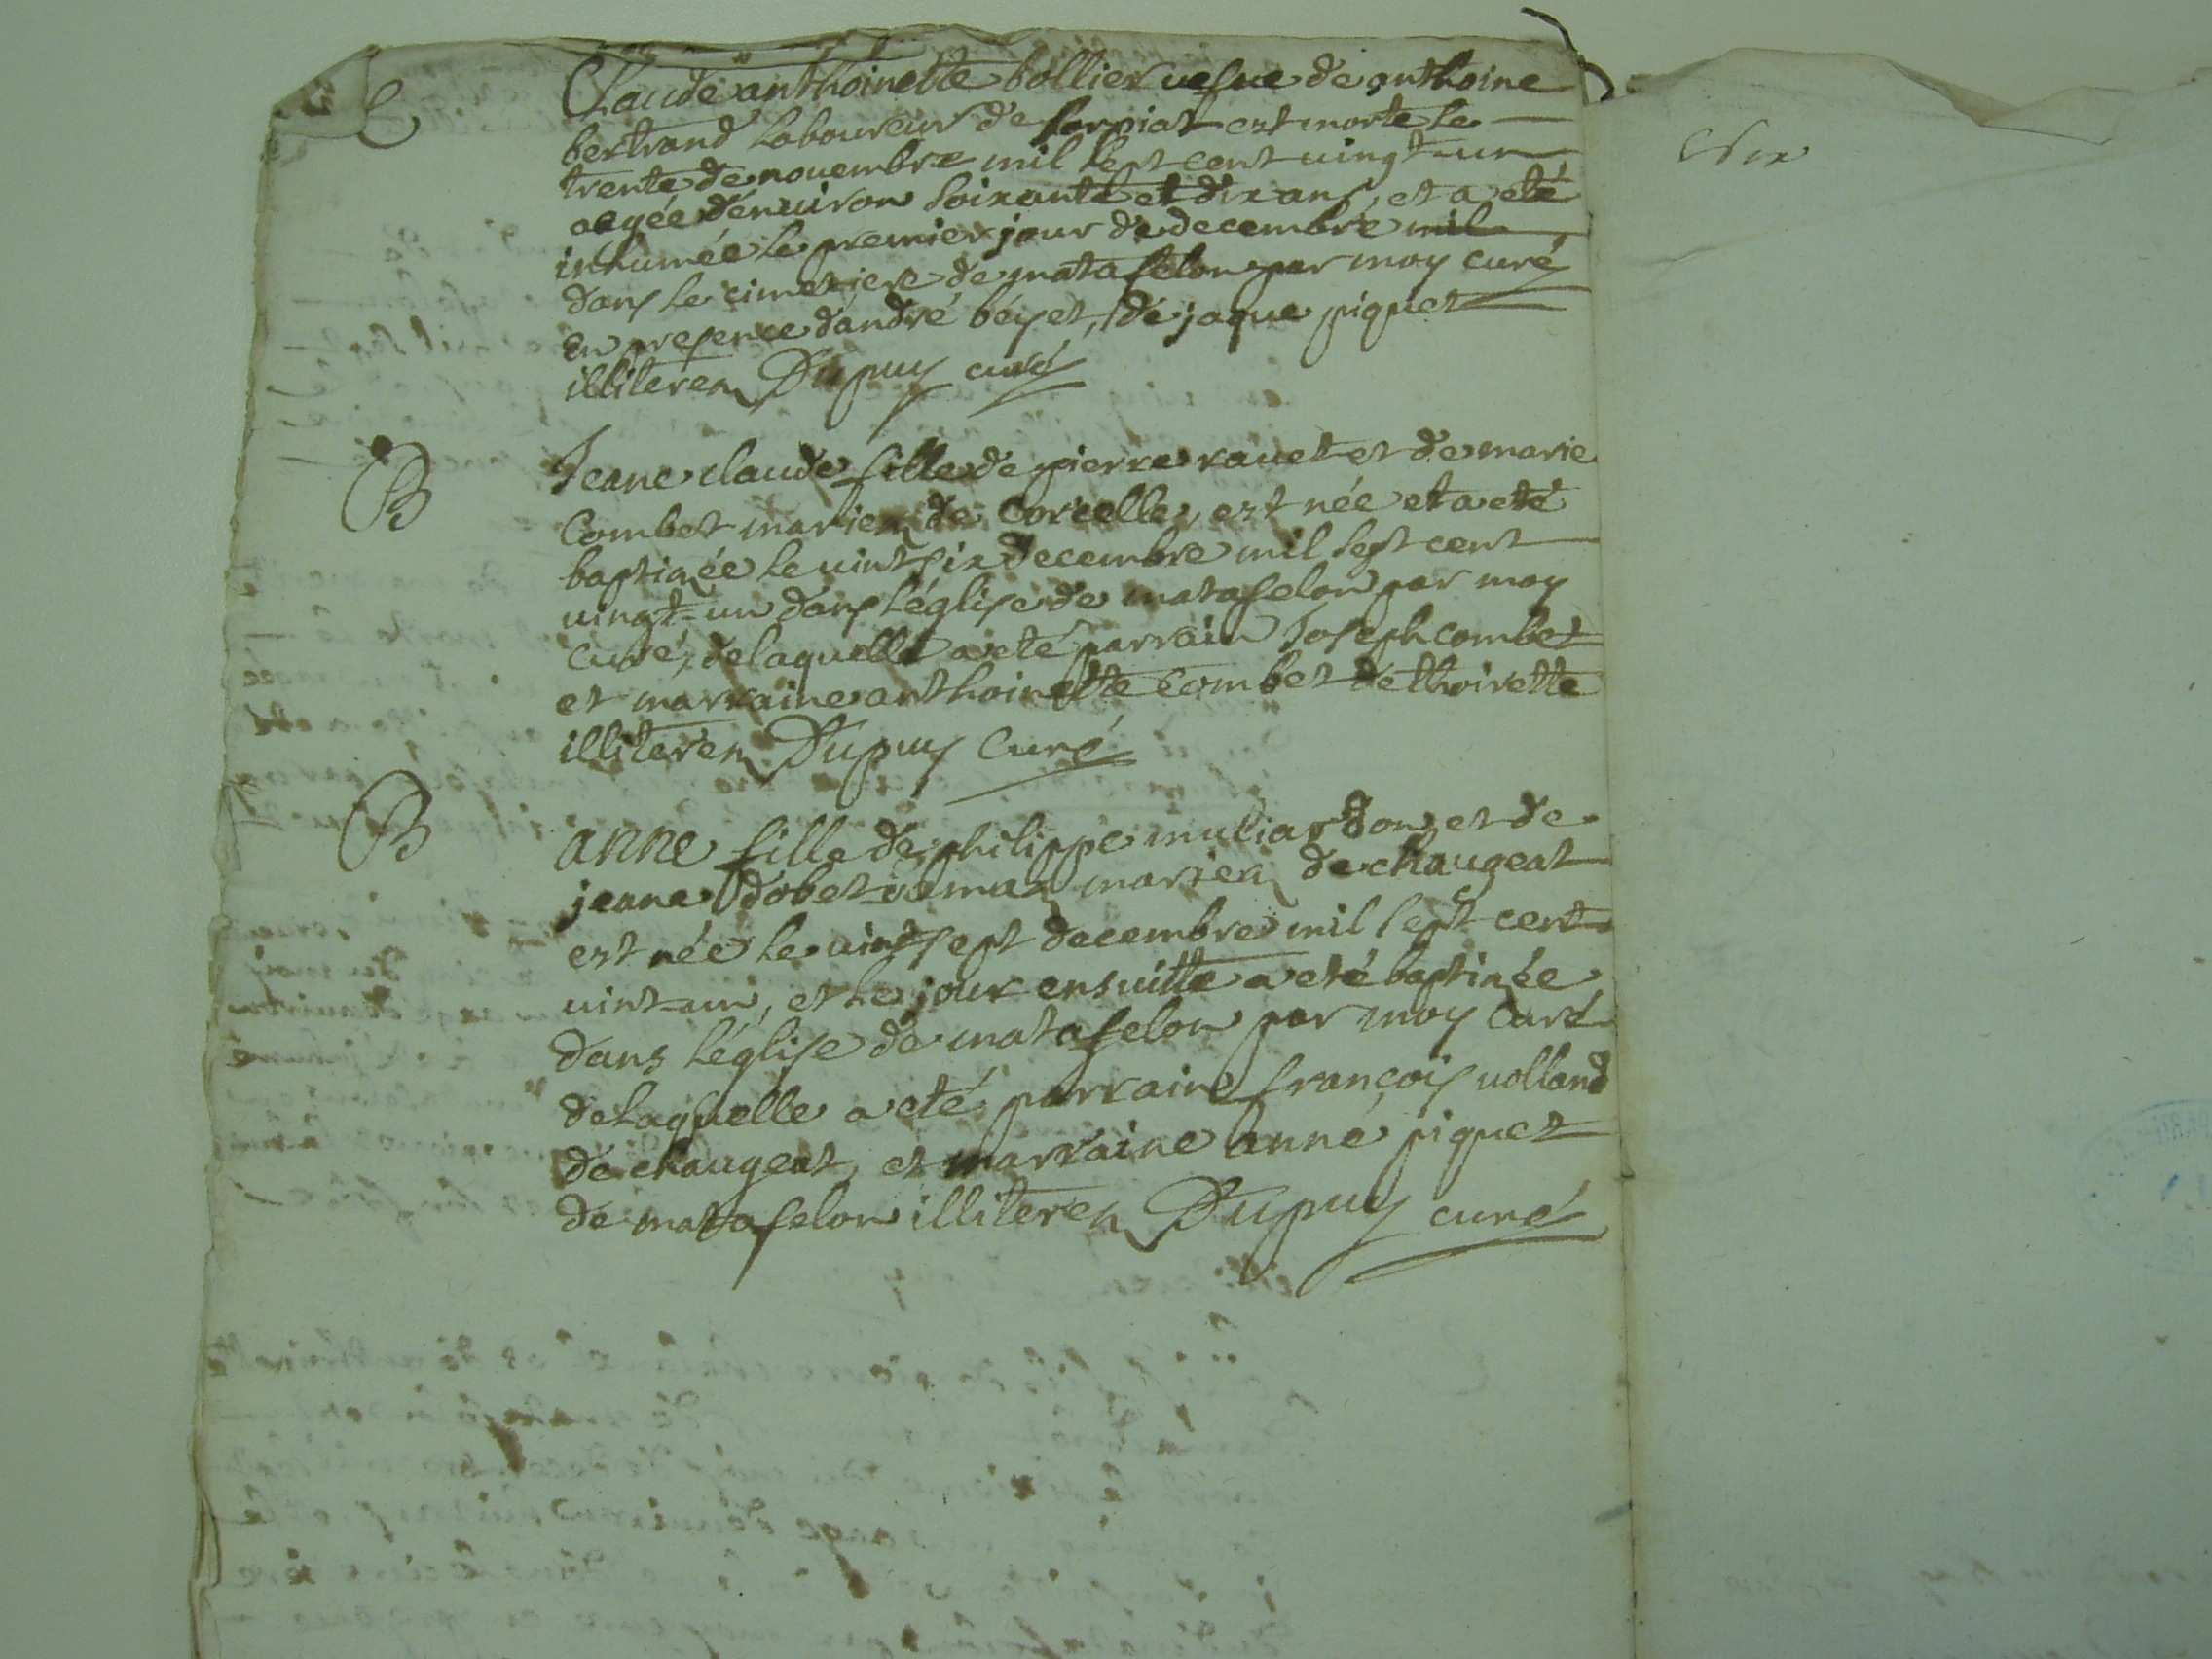 Claude anthoinette bollier vefue de anthoine
bertrand laboureur de sorpiat est morte le
trente de nouembre mil sept cent uingt-un
aagée d'enuiron soixante et dix ans, et a eté
inhumée le premier jour de decembre mil
dans le cimetiere de matafelon par moy curé
en presence d'andré béyet, de jaque piquet
illiteres Dupuy curé
B
Jeane claude fille de pierre rauet et de marie
Combet maries de Corcelle, est née et a eté
baptizée le uint six decembre mil sept cent
uingt-un dans l'église de matafelon par moy
curé, de laquelle a eté parrain Joseph combet
et marraine anthoinette Combet de thoirette
illiteres Dupuy Curé
B
anne fille de philippe muliardon et de
jeane dobet mariez de chaugeat
est née le uint sept decembre mil sept cent
uint-un, et le jour ensuitte a eté baptizée
dans l'église de matafelon par moy Curé
de laquelle a eté parrain françois uolland
de chaugeat, et marraine anne piquet
de matafelon illiteres Dupuy curé